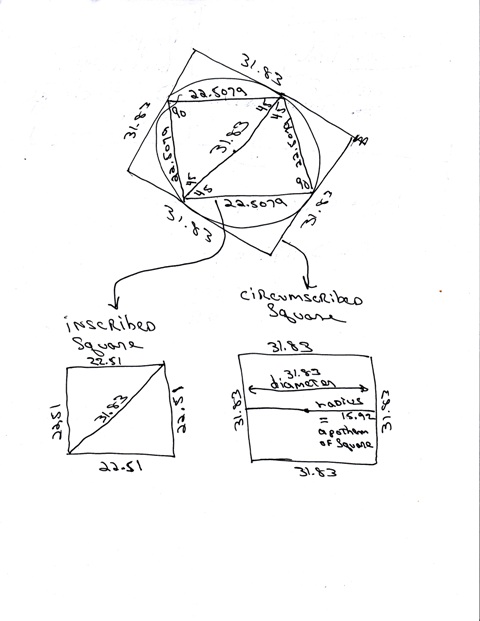 31.83
22.5079
31.83
90
45
45
31.83
22.5079
22.5079
45
45
90
22.5079
31.83
31.83
inscribed
Square
22.51
22.51
31.83
22.51
22.51
Circumscribed
Square
31.83
31.83
diameter
31.83
radius
= 15.92
apothem
of Square
31.83
31.83